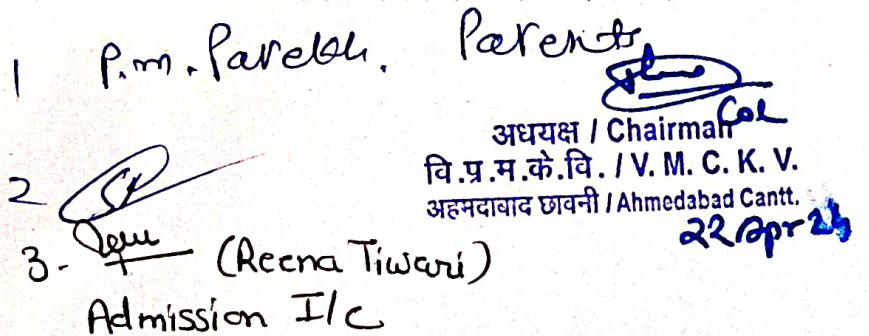 1 P.m. Parekh. Parents
Col
अधयक्ष / Chairman
वि.प्र.म.के.वि. / V. M. C. K. V.
अहमदाबाद छावनी / Ahmedabad Cantt.
22 Apr 25
2
3. (Reena Tiwari)
Admission I/C